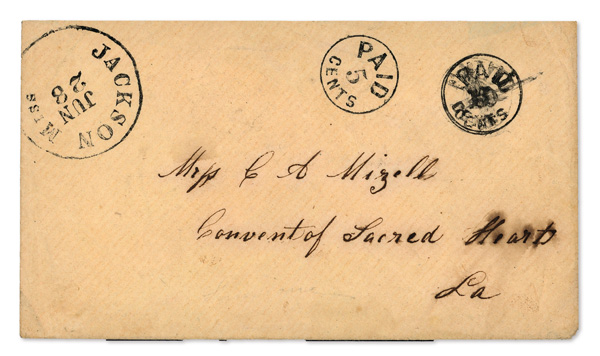 JACKSON Miss
JUN
28
PAID
5
CENTS
PAID
CENTS
Miss C A Mizell
Convent of Sacred Heart
La